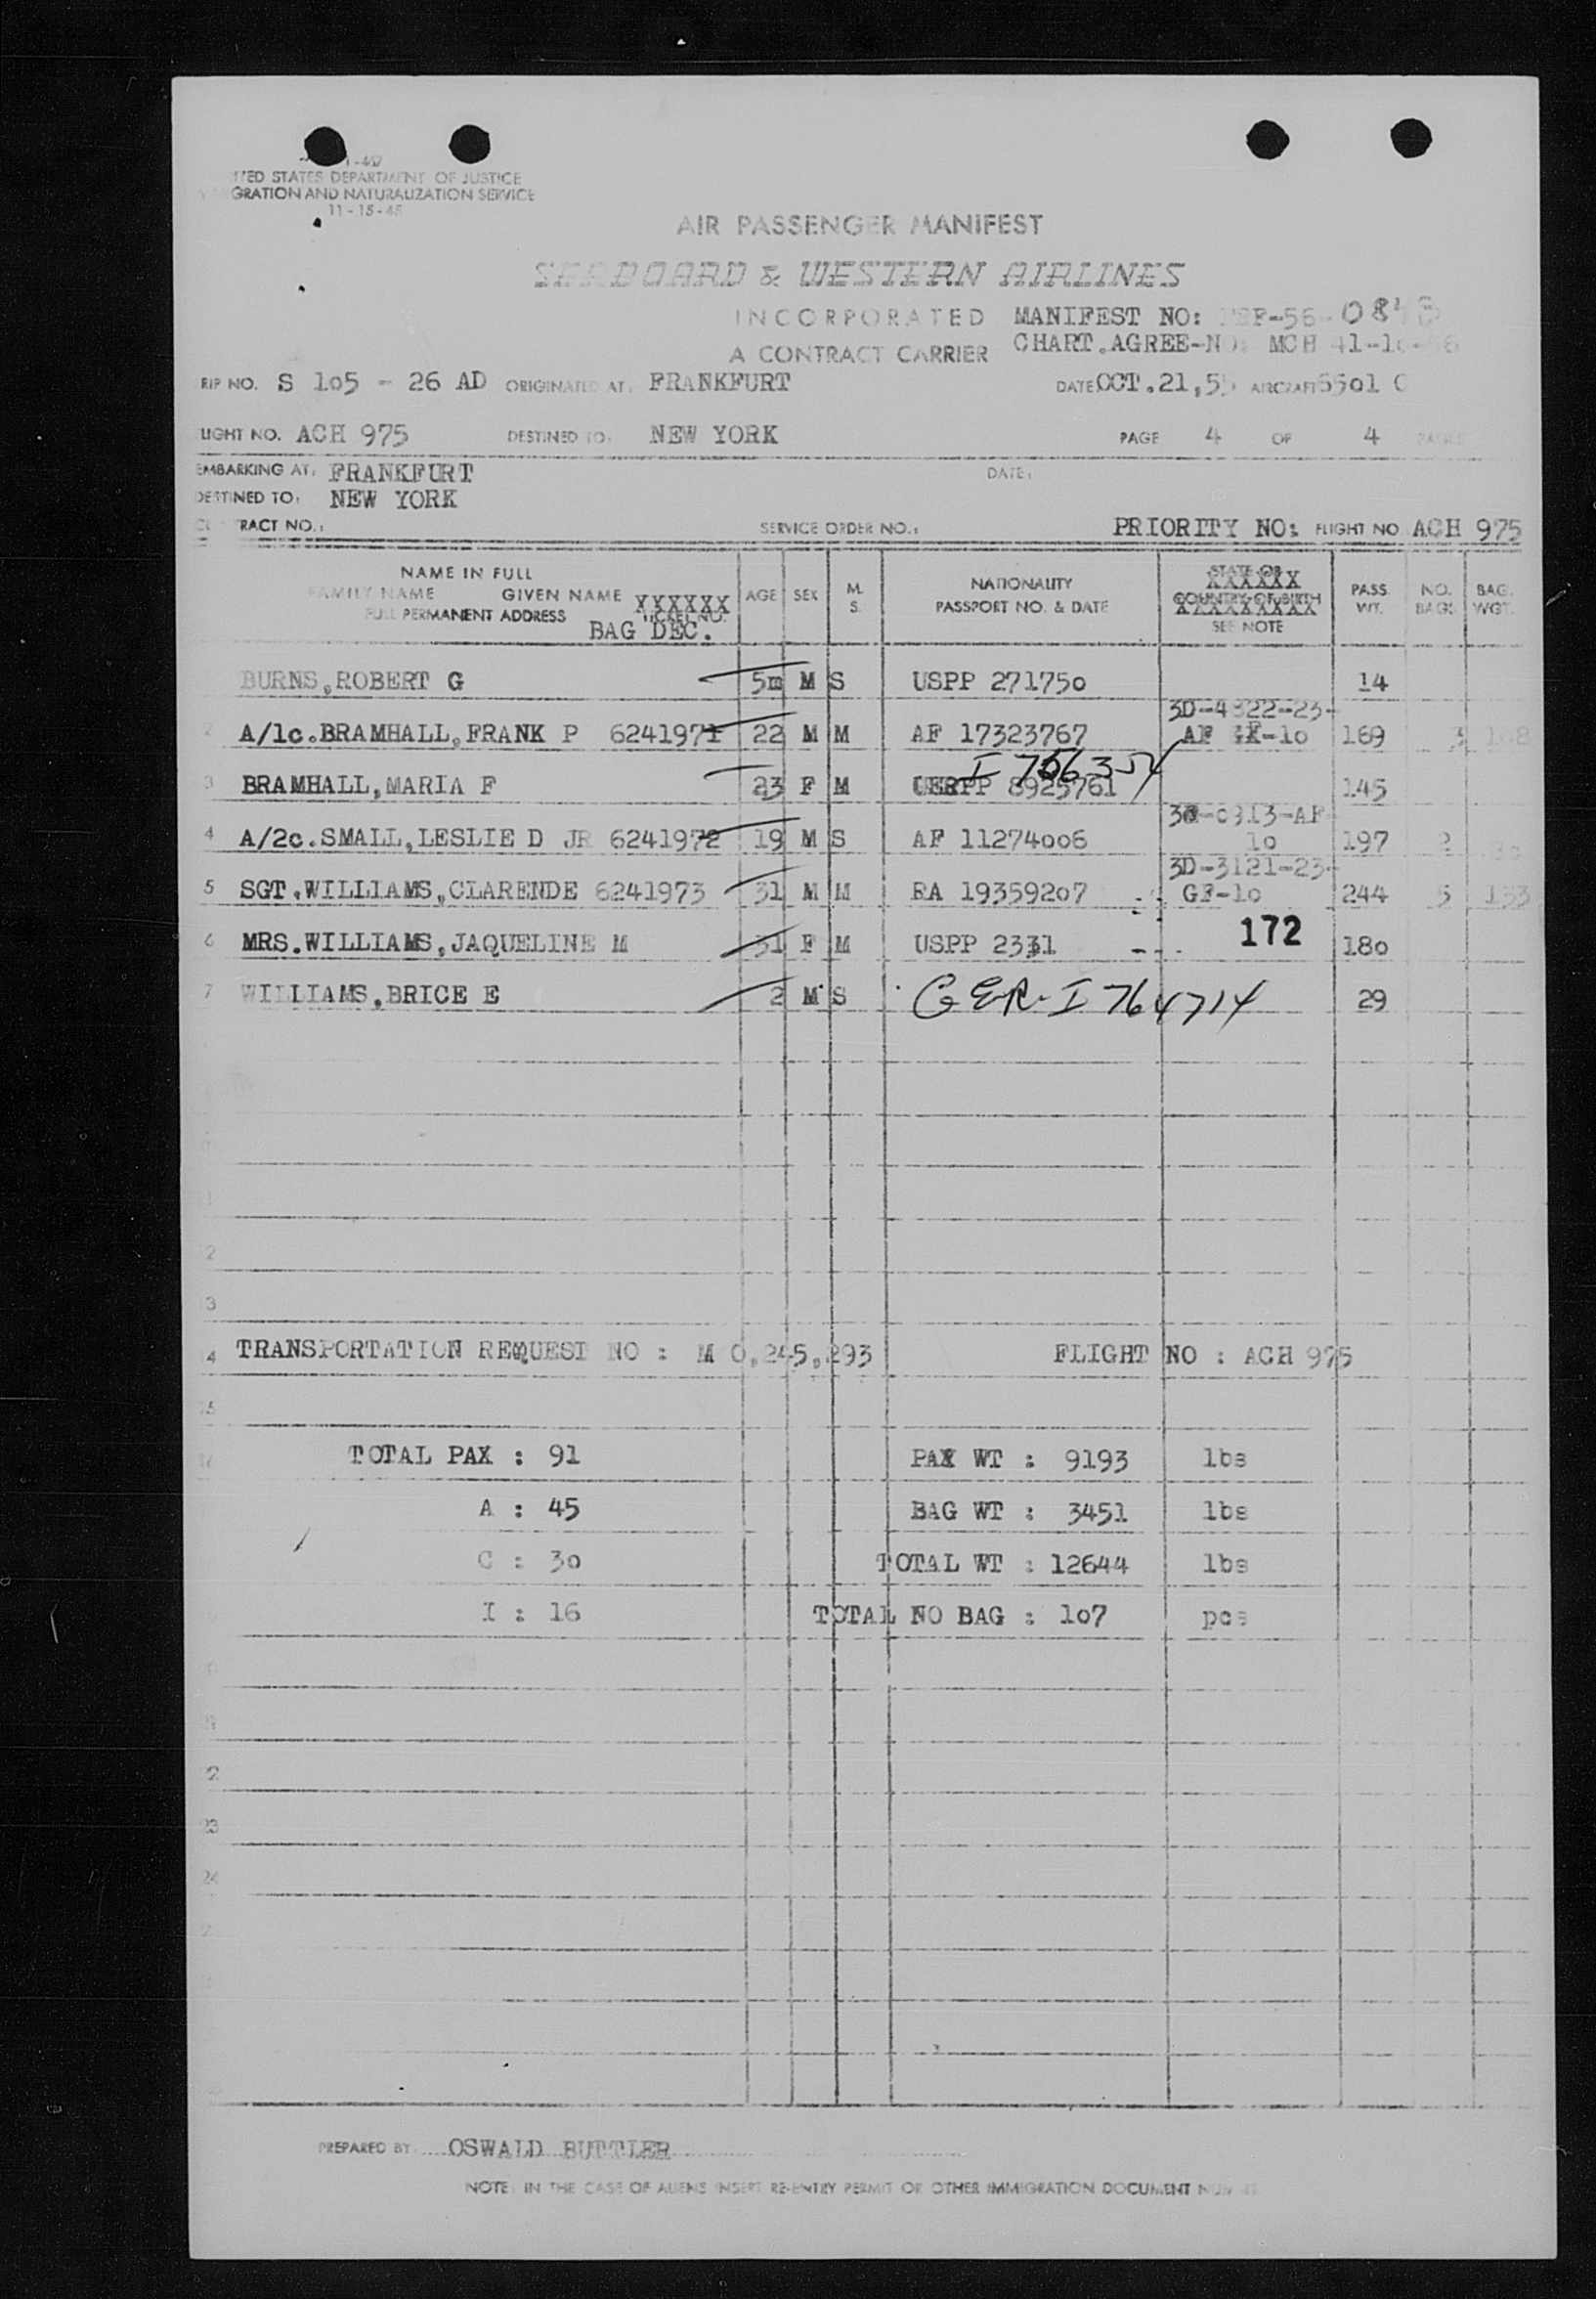 UNITED STATES DEPARTMENT OF JUSTICE
GRATION AND NATURALIZATION SERVICE
11-15-45
AIR PASSENGER MANIFEST
SEABOARD & WESTERN AIRLINES
INCORPORATED MANIFEST NO:
A CONTRACT CARRIER CHART.AGREE-NO: MCH
RIP NO. S 1o5 - 26 AD ORIGINATED AT: FRANKFURT DATE OCT.21,55 AIRCRAFT 55o1 C
LIGHT NO. ACH 975 DESTINED TO: NEW YORK PAGE 4 OF 4 PAGES
EMBARKING AT: FRANKFURT DATE:
DESTINED TO: NEW YORK
RACT NO.: SERVICE ORDER NO.: PRIORITY NO: FLIGHT NO ACH 975
NAME IN FULL
FAMILY NAME GIVEN NAME XXXXXX TICKET NO.
FULL PERMANENT ADDRESS BAG DEC.
AGE SEX M. S. NATIONALITY PASSPORT NO. & DATE STATE OR XXXXXX COUNTRY OF BIRTH XXXXXXXXX SEE NOTE PASS. WT. NO. BAGS BAG. WGT.
BURNS,ROBERT G 5m M S USPP 27175o 14
3D-4822-23-
2 A/1c.BRAMHALL,FRANK P 6241971 22 M M AF 17323767 AF -1o 169 3
I 766354
3 BRAMHALL,MARIA F 23 F M USPP 8925761 145
4 A/2c.SMALL,LESLIE D JR 6241972 19 M S AF 11274oo6 1o 197 2
3D-3121-23-
5 SGT.WILLIAMS,CLARENDE 6241973 31 M M RA 193592o7 GF-1o 244 5 153
172
6 MRS.WILLIAMS,JAQUELINE M 31 F M USPP 2331 18o
7 WILLIAMS,BRICE E 2 M S GER. I 764714 29
2
3
4 TRANSPORTATION REQUEST NO : M 0,245,293 FLIGHT NO : ACH 975
15
TOTAL PAX : 91 PAX WT : 9193 lbs
A : 45 BAG WT : 3451 lbs
C : 3o TOTAL WT : 12644 lbs
I : 16 TOTAL NO BAG : 1o7 pcs
2
23
24
PREPARED BY OSWALD BUTTLER
NOTE: IN THE CASE OF ALIENS INSERT RE-ENTRY PERMIT OR OTHER IMMIGRATION DOCUMENT